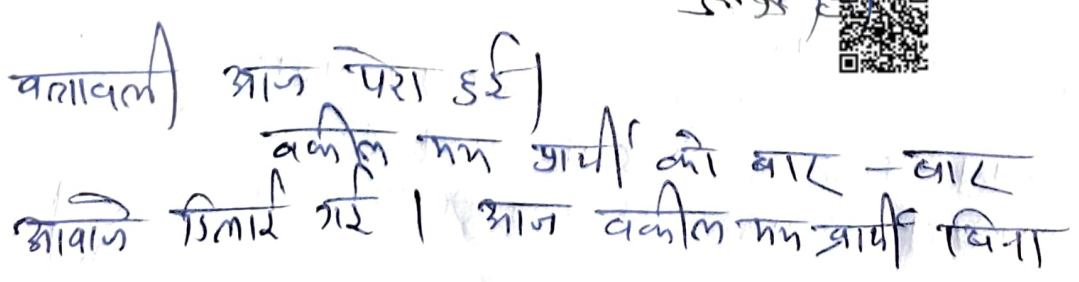 पत्रावली आज पेश हुई।
वकील मय प्रार्थी को बार - बार
आवाजे दिलाई गई। आज वकील मय प्रार्थी बिना